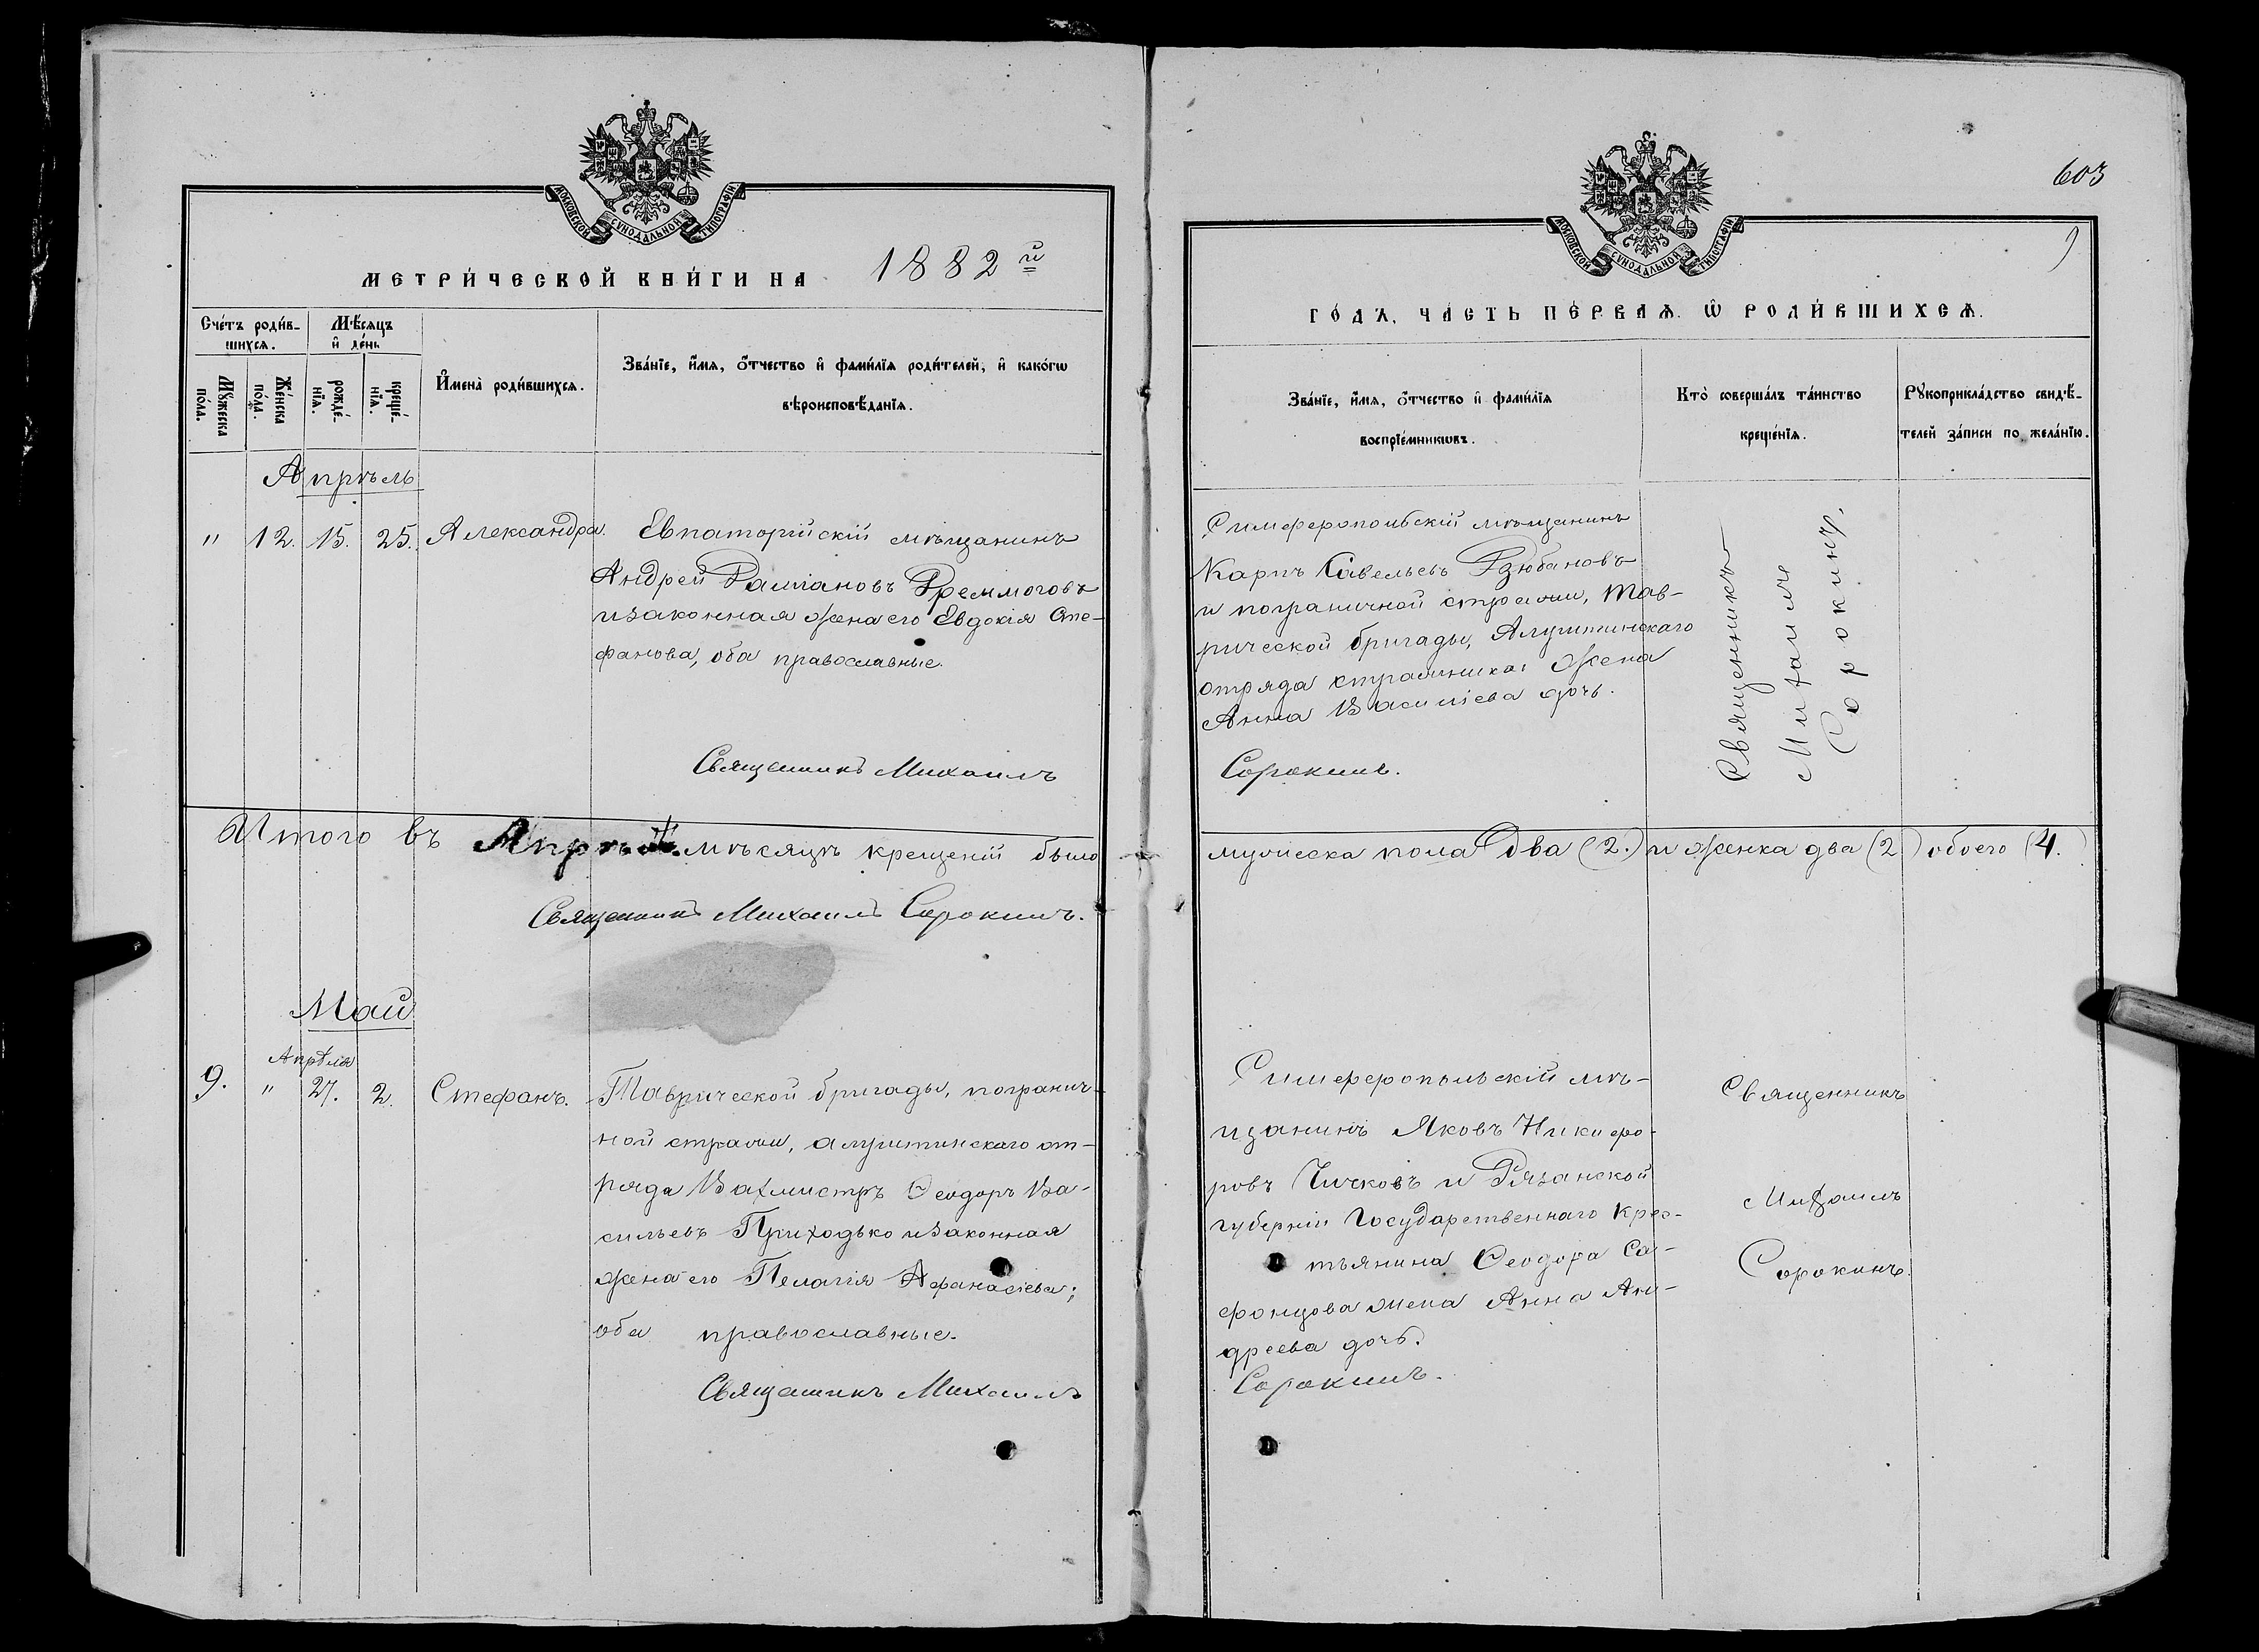 МОСКОВСКОЙ СѴНОДАЛЬНОЙ ТИПОГРАФІИ
МЕТРИ́ЧЕСКОЙ КНИ́ГИ НА 1882 й
Сче́тъ роди́в-
шихсѧ.
Мѣ́сяцъ
и҆ де́нь
Мꙋ́жеска
по́ла.
Же́нска
по́ла.
рожде́-
нїѧ.
креще́-
нїѧ.
И҆мена̀ роди́вшихсѧ.
Зва́нїе, и҆́мѧ, ѻ҆́тчество и҆ фами́лїѧ роди́телей, и҆ како́гѡ
вѣроисповѣ́данїѧ.
Апрѣль
" 12. 15. 25. Александра.
Евпаторійскій мѣщанинъ
Андрей
и законная жена его Евдокія Сте-
фанова, оба православные.
Священникъ Михаилъ
Итого въ Апрѣлѣ мѣсяцѣ крещеній было
Священникъ Михаилъ Сорокинъ.
Май
Апрѣля
9. " 27. 2. Стефанъ.
Таврической бригады, погранич-
ной стражи, алуштинскаго от-
ряда Вахмистръ Ѳеодоръ Ва-
сильевъ Приходько и законная
жена его Пелагія Афанасіева;
оба православные.
Священникъ Михаилъ
603
9
МОСКОВСКОЙ СѴНОДАЛЬНОЙ ТИПОГРАФІИ
ГО́ДЪ, ЧА́СТЬ ПЕ́РВАѦ. Ѽ РОДИ́ВШИХСѦ.
Зва́нїе, и҆́мѧ, ѻ҆́тчество и҆ фами́лїѧ
воспрїе́мникѡвъ.
Кто̀ соверша́лъ та́инство
креще́нїѧ.
Рꙋкоприкла́дство свидѣ́-
телей за́писи по жела́нїю.
Симферопольскій мѣщанинъ
Карпъ Савельевъ Рзюбановъ
и пограничной стражи, Тав-
рической бригады, Алуштинскаго
отряда стражника жена
Анна Василіева дочь.
Сорокинъ.
Священникъ
Михаилъ
Сорокинъ.
мужеска пола два (2.) и женка два (2) обоего (4.)
Симферопольскій мѣ-
щанинъ Яковъ Никифо-
ровъ Чичковъ и Рязанской
губерніи Государственнаго Крес-
тьянина Ѳеодора Са-
фонцова жена Анна Ан-
дреева дочь.
Сорокинъ.
Священникъ
Михаилъ
Сорокинъ.